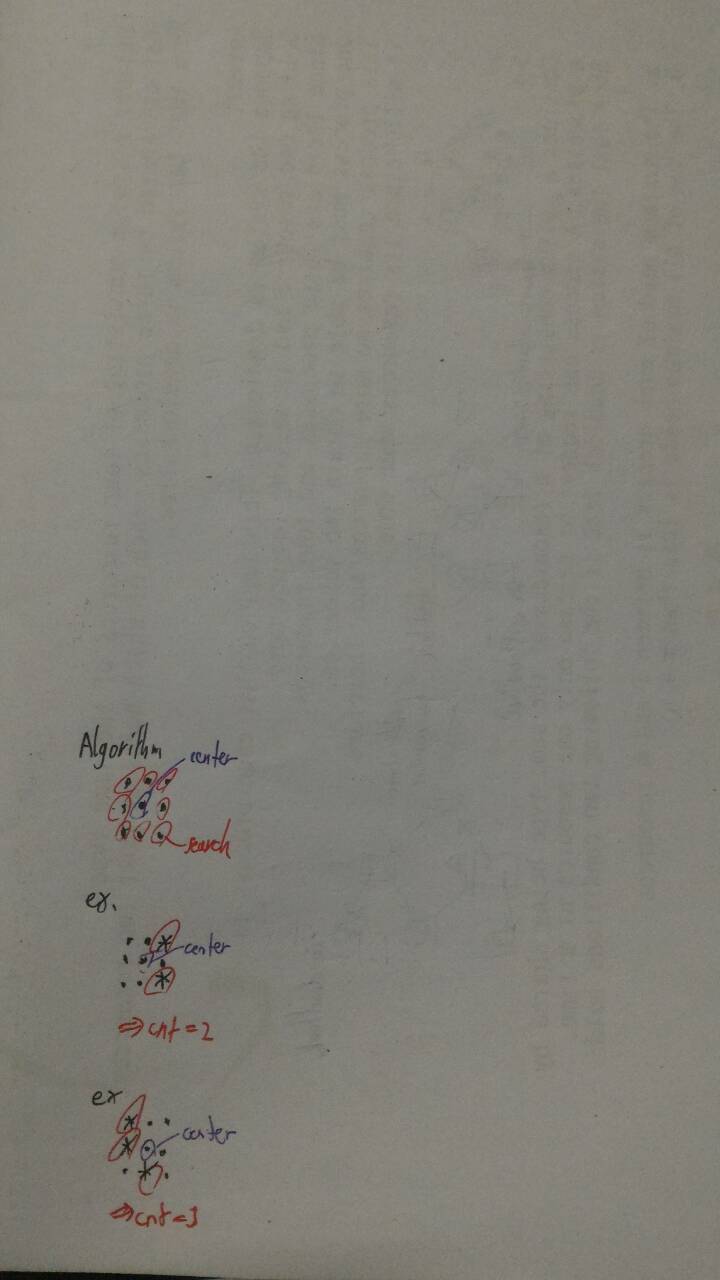 Algorithm
center
• • •
• • •
• • •
search
ex.
• • *
• • •
• • *
center
⇒ cnt = 2
ex
* • •
* • •
• * •
center
⇒ cnt = 3